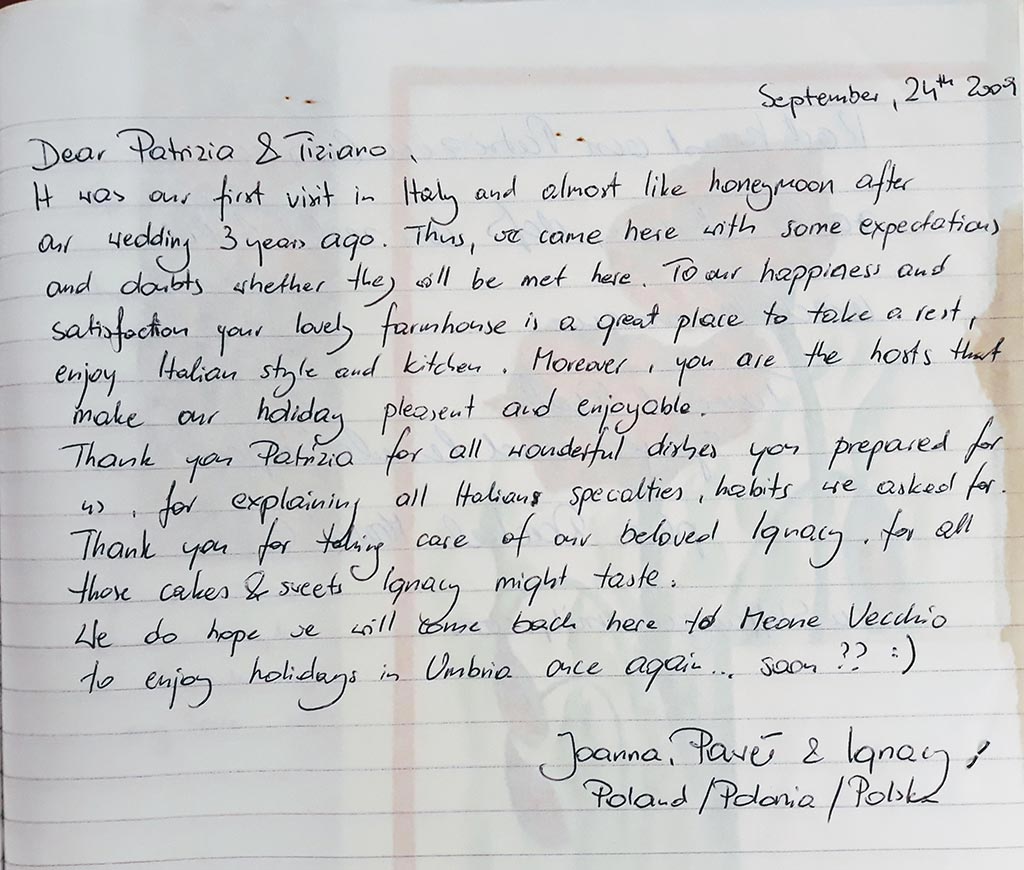 September, 24th 2009
Dear Patrizia & Tiziano,
It was our first visit in Italy and almost like honeymoon after
our wedding 3 years ago. Thus, we came here with some expectations
and doubts whether they will be met here. To our happiness and
satisfaction your lovely farmhouse is a great place to take a rest,
enjoy Italian style and kitchen. Moreover, you are the hosts that
make our holiday plesent and enjoyable.
Thank you Patrizia for all wonderful dishes you prepared for
us, for explaining all Italians specialties, habits we asked for.
Thank you for taking care of our beloved Ignacy, for all
those cakes & sweets Ignacy might taste.
We do hope we will come back here to Meone Vecchio
to enjoy holidays in Umbria once again... soon ?? :)
Joanna, & Ignacy
Poland / Polonia / Polska